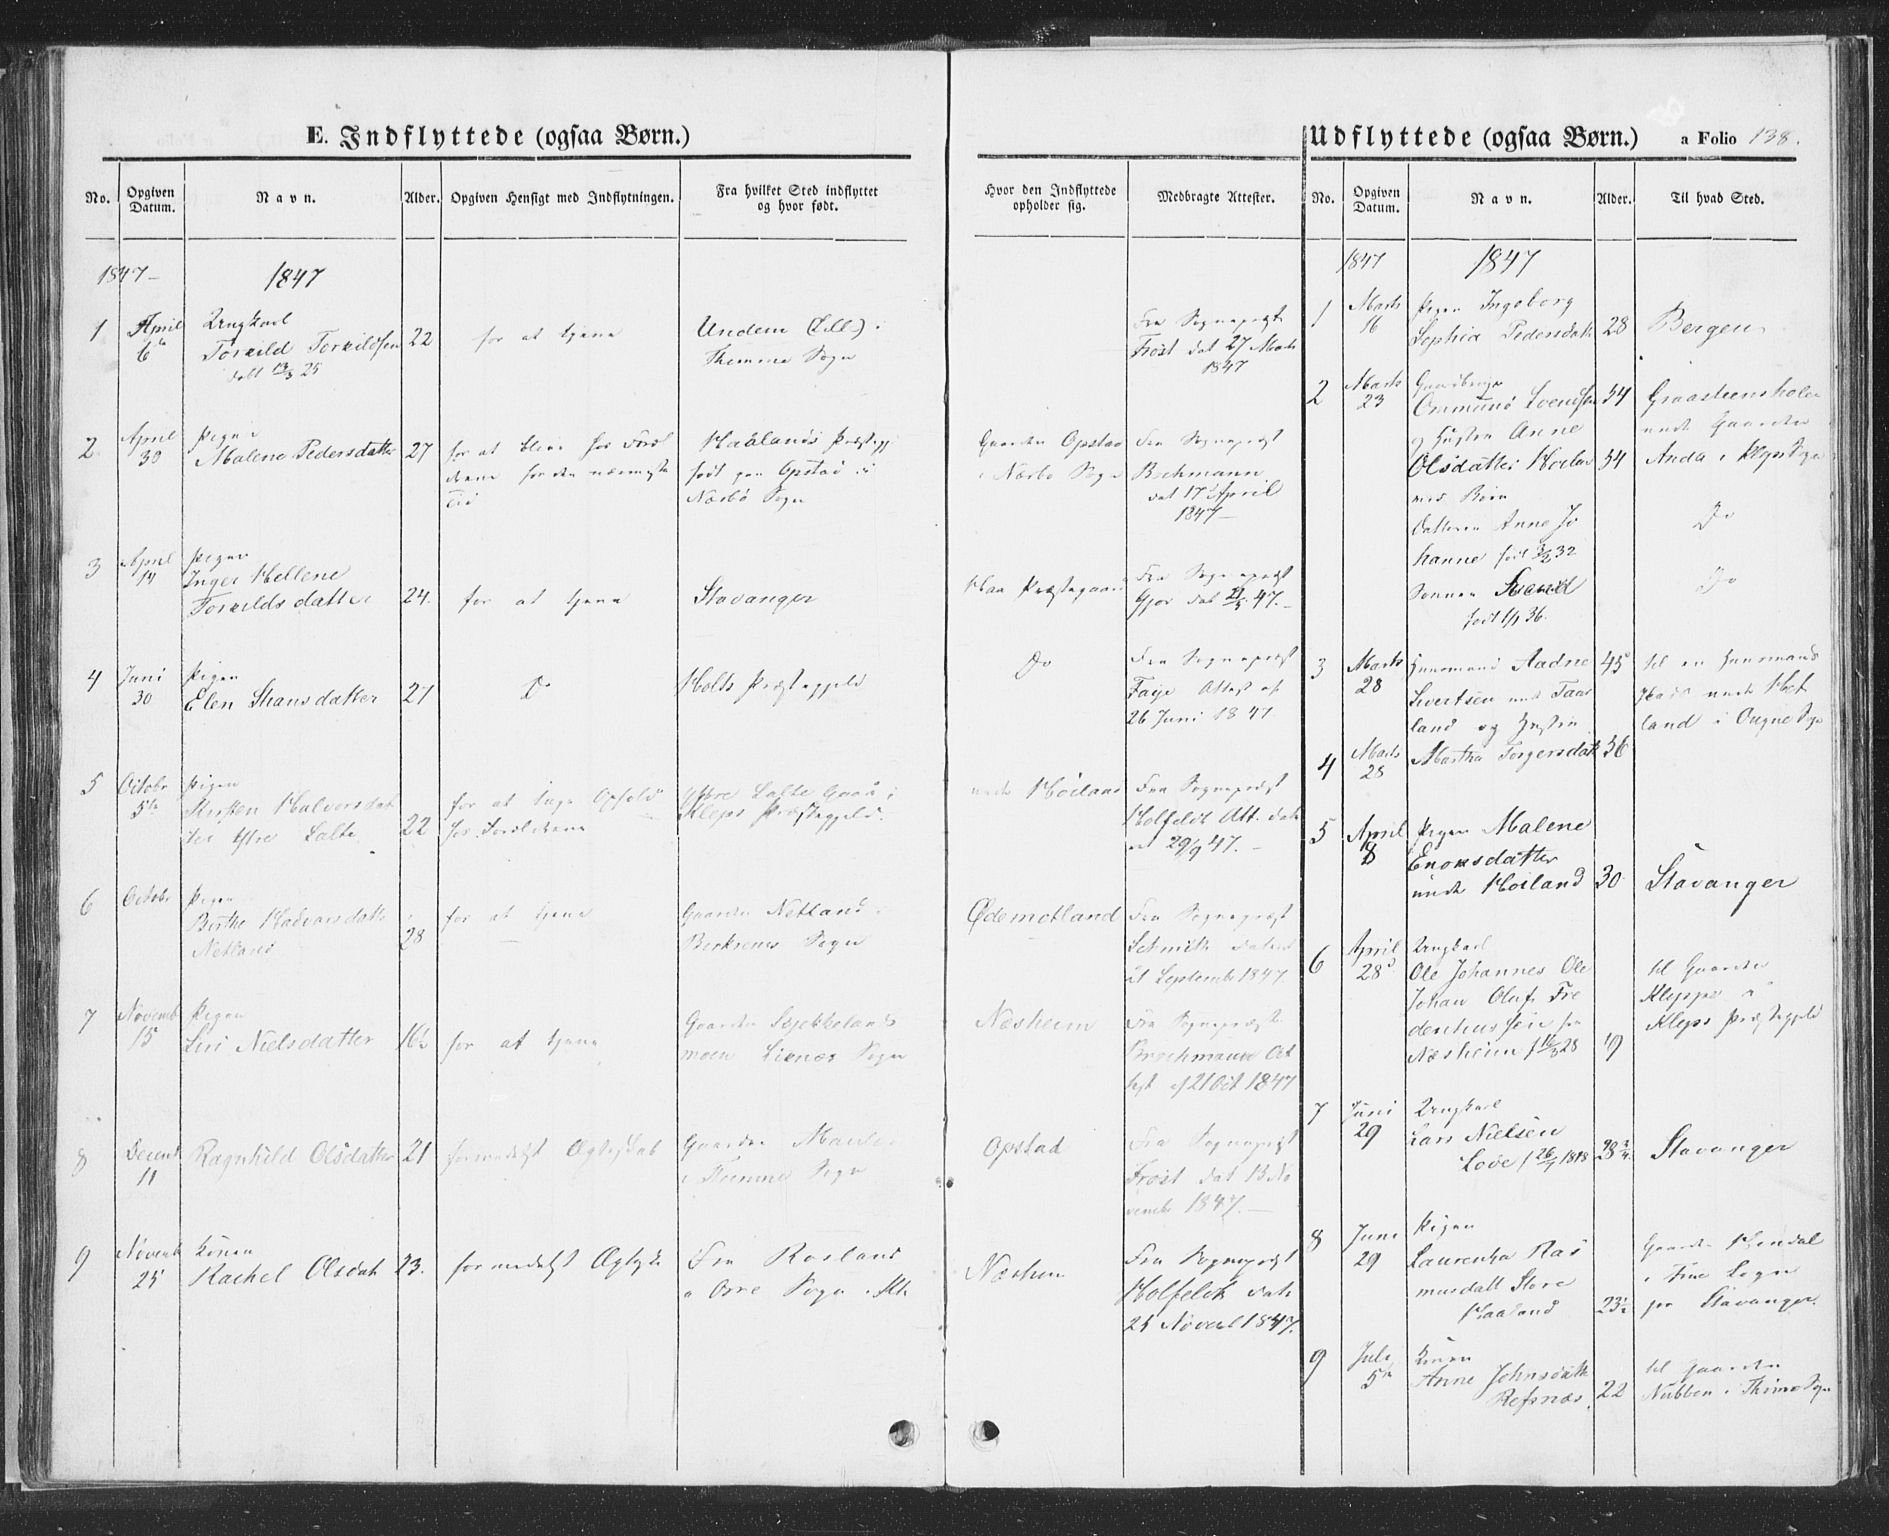 E. Indflyttede (ogsaa Børn.)
No.
Opgiven Datum.
Navn.
Alder.
Opgiven Hensigt med Indflytningen.
Fra hvilket Sted indflyttet
og hvor født.
Hvor den Indflyttede
opholder sig.
Medbragte Attester.
1847-
1847
1
April
6te
Ungkarl
Torkild Torkildsen
døbt 13/3 25
22
for at tjene
Undem (Lille) i
Themme Sogn
Fra Sognepræst
Frost dat 27 Marts
1847
2
April
30
Pigen
Malene Pedersdatter
27
for at blive hos Foræl
drene for den nærmeste
Tid
Haalands Præstegj
født paa Opstad i
Nærbø Sogn
Gaarden Opstad
i Nærbo Sogn
Fra Sognepræst
dat 17 April
1847-
3
April
14
Pigen
Inger Hellene
Torkildsdatter
24.
for at tjene
Stavanger
Haa Præstegaard
Fra Sognepræst
47.-
4
Juni
30
Pigen
Elen Hansdatter
27
Do
Holts Præstegjeld
Do
Fra Sognepræst
Faye Attest af
26 Juni 1847.
5
Octobr
5te
Pigen
Kirsten Halvorsdat
ter Østre Salte
22
for at tage Ophold
hos Forældrene
Østre Salte Gaard i
Kleps Præstegjeld.
under Höiland
Fra Sognepræst
Holfeldt Att. date
ret 29/9 47.-
6
Octobr
Pigen
Berthe Hadvarsdatter
Netland
28
for at tjene
Gaarden Netland i
Berkrems Sogn
Ødemotland
Fra Sognepræst
Schmith dateret
21 September 1847
7
Novemb
15
Pigen
Siri Nielsdatter
16½
for at tjene
Gaarden
moen Liknes Sogn
Næsheim
Fra Sognepræst
test af 21 Oct 1847
8
Decemb
11
Ragnhild Olsdatter
21
formedelst Ægteskab
Gaarden
i Themme Sogn
Opstad
Fra Sognepræst
Frost dat 13 No
vembr 1847.-
9
Novemb
25
Konen
Rachel Olsdat
23.
formedelst Ægtesk
Fra Rosland
i Orre Sogn
Næsheim
Fra Sognepræst
Holfeldt dat
25 Novbr 1847.
Udflyttede (ogsaa Børn.)
a Folio 138.
No.
Opgiven Datum.
Navn.
Alder.
Til hvad Sted.
1847
1847
1
Marts
16
Pigen Ingeborg
Sophia Pedersdatt
28
Bergen
2
Marts
23
Gaardbruger
Ommund Svendsen
54
Graasteensholen
under Gaarden
og Hustru Anne
Olsdatter Høiland
54
Anda i Kleps Sogn
med Børn
Datteren Anne Jo
hanne født 3/3 32
Do
Sønnen Svend
født 1/1 36.
Do
3
Marts
28
Huusmand Aadne
Sivertsen under Taar
land og Hustru
45
til en Huusmands
Plads under Høt
land i Ougne Sogn
4
Marts
28
Martha Torgersdatt
36
5
April
8
Pigen Malene
Enoksdatter
under Höiland
30
Stavanger
6
April
28
Ungkarl
Ole Johannes Ole
Johan Oluf Fre
derichussen fra
Næsheim f 16/3 28
19
til Gaarden
Kleppe i
Kleps Præstegjeld
7
Juni
29
Ungkarl
Lars Nielsen
Lode f 26/9 1818
28¾
Stavanger
8
Juni
29
Pigen
Laurentza Ras
musdatt Store
Haaland
23½
Gaarden Hindal
i Frue Sogn
per Stavanger.
9
Juli
5te
Konen
Anne Johnsdatt
Refsnæs.
22
til Gaarden
Nubben i Thime Sogn